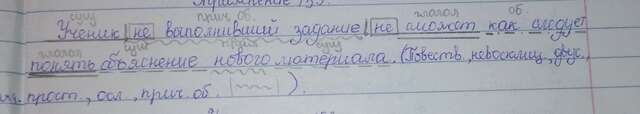 Упражнение
сущ прич. об. глагол об.
Ученик |не выполнивший задание| не сможет как следует
глагол сущ прил сущ
понять объяснение нового материала. (Повеств, невосклиц,
прост., осл, прич. об. |~~|).